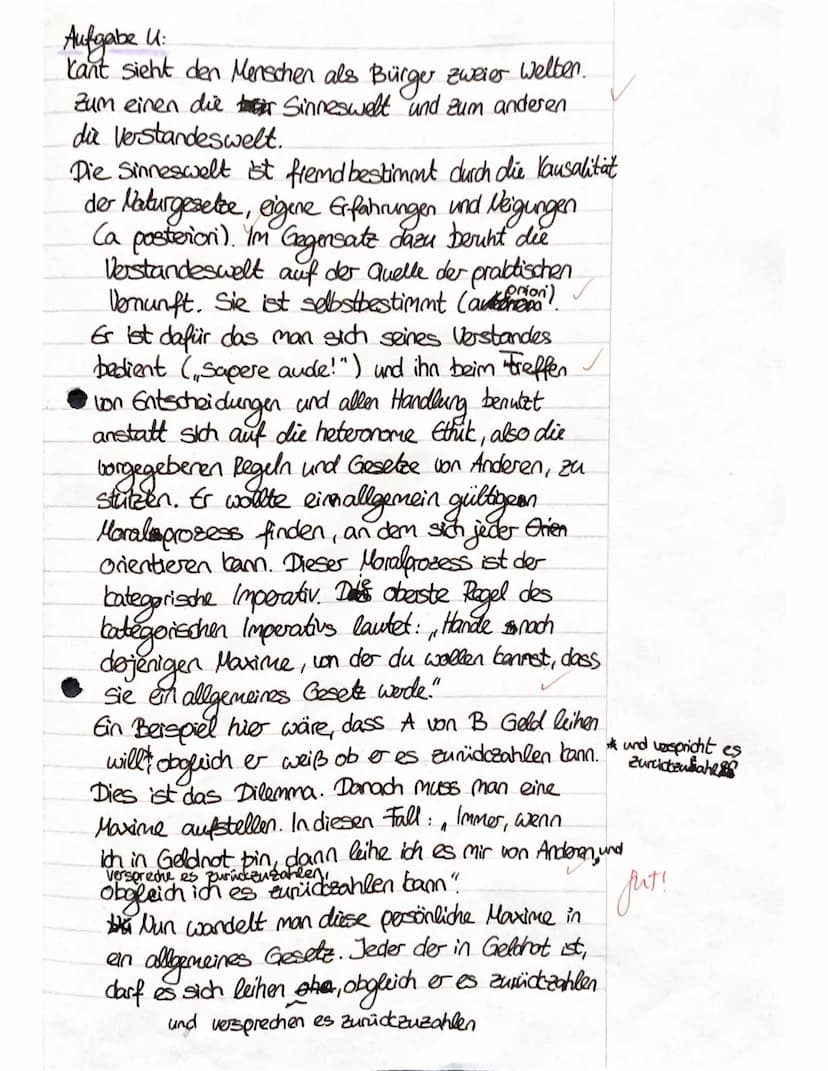 Aufgabe 4:
Kant sieht den Menschen als Bürger zweier Welten.
Zum einen die Sinneswelt und zum anderen
die Verstandeswelt.
Die Sinneswelt ist fremdbestimmt durch die Kausalität
der Naturgesetze, eigene Erfahrungen und Neigungen
(a posteriori). Im Gegensatz dazu beruht die
Verstandeswelt auf der Quelle der praktischen
Vernunft. Sie ist selbstbestimmt (a priori).
Er ist dafür das man sich seines Verstandes
bedient („Sapere aude!“) und ihn beim Treffen
von Entscheidungen und allen Handlung benutzt
anstatt sich auf die heteronome Ethik, also die
vorgegebenen Regeln und Gesetze von Anderen, zu
stützen. Er wollte ein allgemein gültigen
Moralprozess finden, an dem sich jeder
orientieren kann. Dieser Moralprozess ist der
kategorische Imperativ. Die oberste Regel des
kategorischen Imperativs lautet: „Hande nach
dejenigen Maxime, von der du wollen kannst, dass
sie ein allgemeines Gesetz werde.“
Ein Beispiel hier wäre, dass A von B Geld leihen
will* obgleich er weiß ob er es zurückzahlen kann.
* und verspricht es
zurückzuzahlen
Dies ist das Dilemma. Danach muss man eine
Maxime aufstellen. In diesen Fall: „Immer, wenn
ich in Geldnot bin, dann leihe ich es mir von Anderen, und
verspreche es zurückzuzahlen,
obgleich ich es zurückzahlen kann“.
gut!
Nun wandelt man diese persönliche Maxime in
ein allgemeines Gesetz. Jeder der in Geldnot ist,
darf es sich leihen, obgleich er es zurückzahlen
und versprechen es zurückzuzahlen